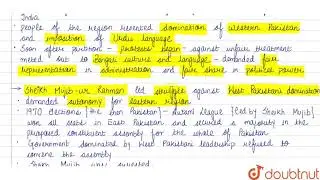 India
people of the region resented domination of Western Pakistan
and imposition of Urdu language
• Soon after partition - protests began - against unfair treatment
meted out to Bengali culture and language - demanded fair
representation in administration and fair share in political power.
→ Sheikh Mujib-ur Rahman led struggle against West Pakistani domination
- demanded autonomy for eastern region
• 1970 elections (the then Pakistan) - Awami League (led by Sheikh Mujib)
won all seats in East Pakistan and secured a majority in the
proposed constituent assembly for the whole of Pakistan
• Government dominated by West Pakistani leadership refused to
convene the assembly
• Sheikh Mujib was arrested
doubtnut